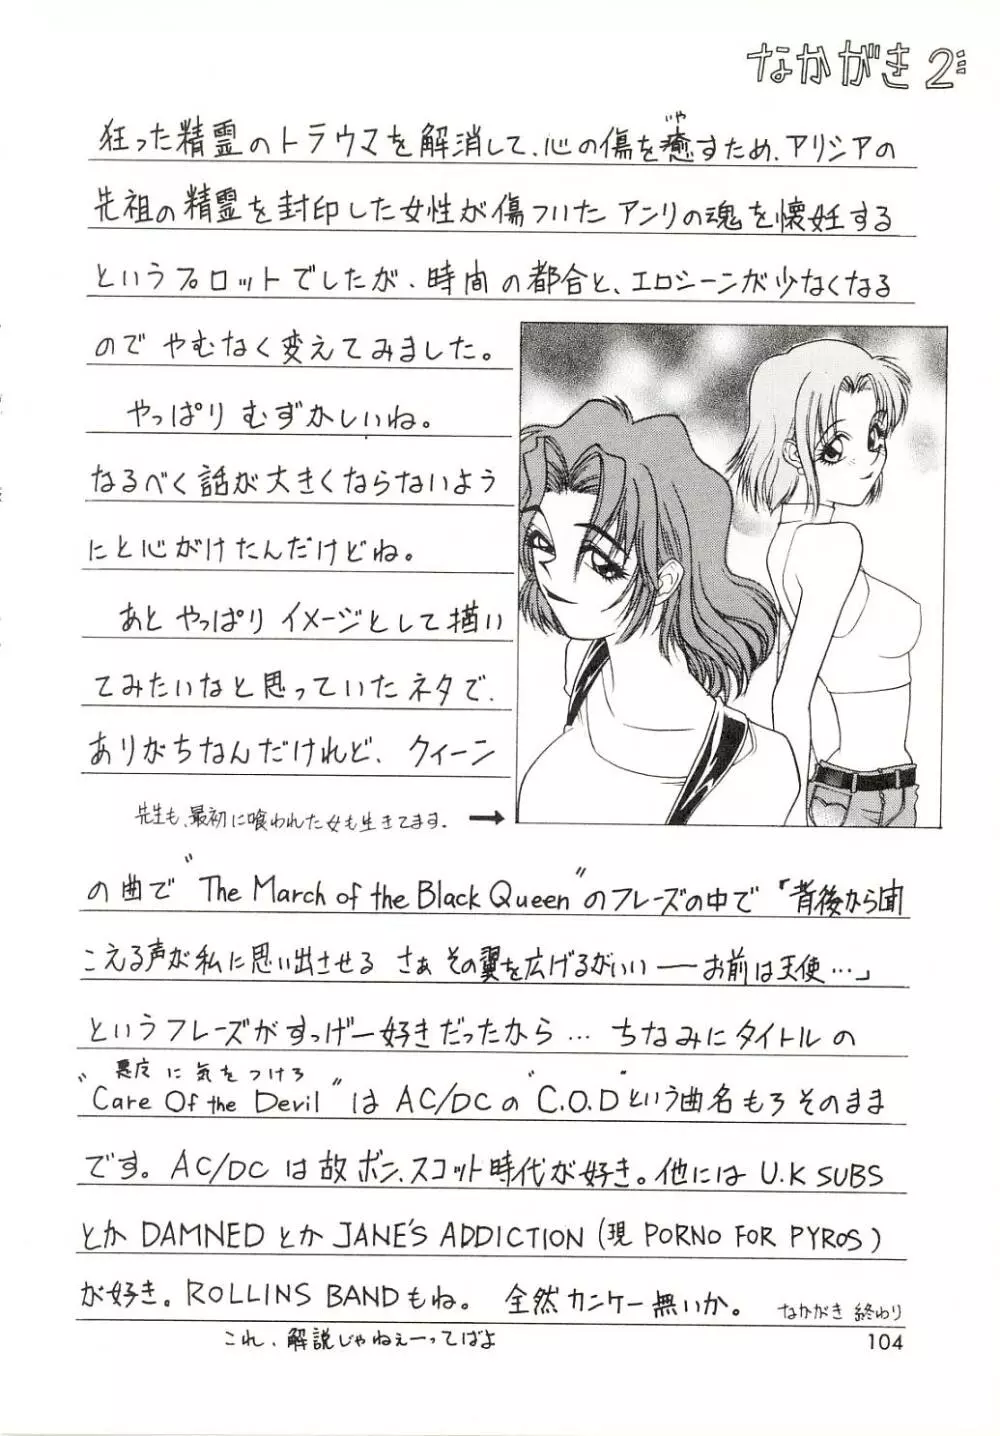 なかがき2:
いや
狂った精霊のトラウマを解消して、心の傷を癒すため、アリシアの
先祖の精霊を封印した女性が傷ついたアンリの魂を懐妊する
というプロットでしたが、時間の都合と、エロシーンが少なくなる
のでやむなく変えてみました。
やっぱりむずかしいね。
なるべく話が大きくならないよう
にと心がけたんだけどね。
あとやっぱりイメージとして描い
てみたいなと思っていたネタで、
ありがちなんだけれど、クィーン
先生も、最初に喰われた女も生きてます。→
の曲で"The March of the Black Queen"のフレーズの中で「背後から聞
こえる声が私に思い出させる さぁその翼を広げるがいい──お前は天使…」
というフレーズがすっげー好きだったから… ちなみにタイトルの
悪魔に気をつけろ
"Care Of the Devil"は AC/DCの"C.O.D"という曲名もろそのまま
です。AC/DCは故ボン、スコット時代が好き。他にはU.K SUBS
とか DAMNEDとか JANE'S ADDICTION (現 PORNO FOR PYROS)
が好き。ROLLINS BANDもね。 全然カンケー無いか。 なかがき 終わり
これ、解説じゃねぇーってばよ
104